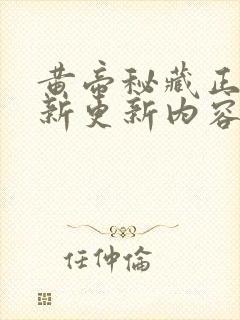 黄帝秘藏正
新更新内容
任仲倫